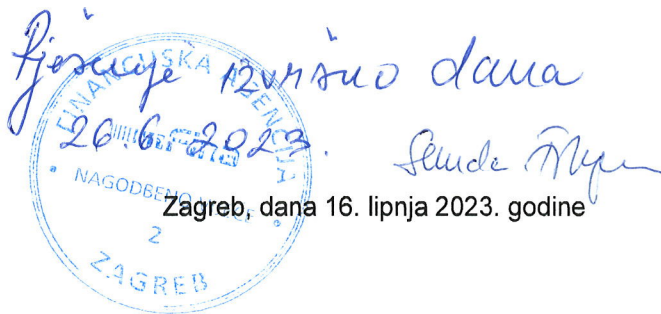 Rješenje izvršno dana
26.6.2023.
FINANCIJSKA AGENCIJA
Fina
NAGODBENO VIJEĆE
2
ZAGREB
Zagreb, dana 16. lipnja 2023. godine